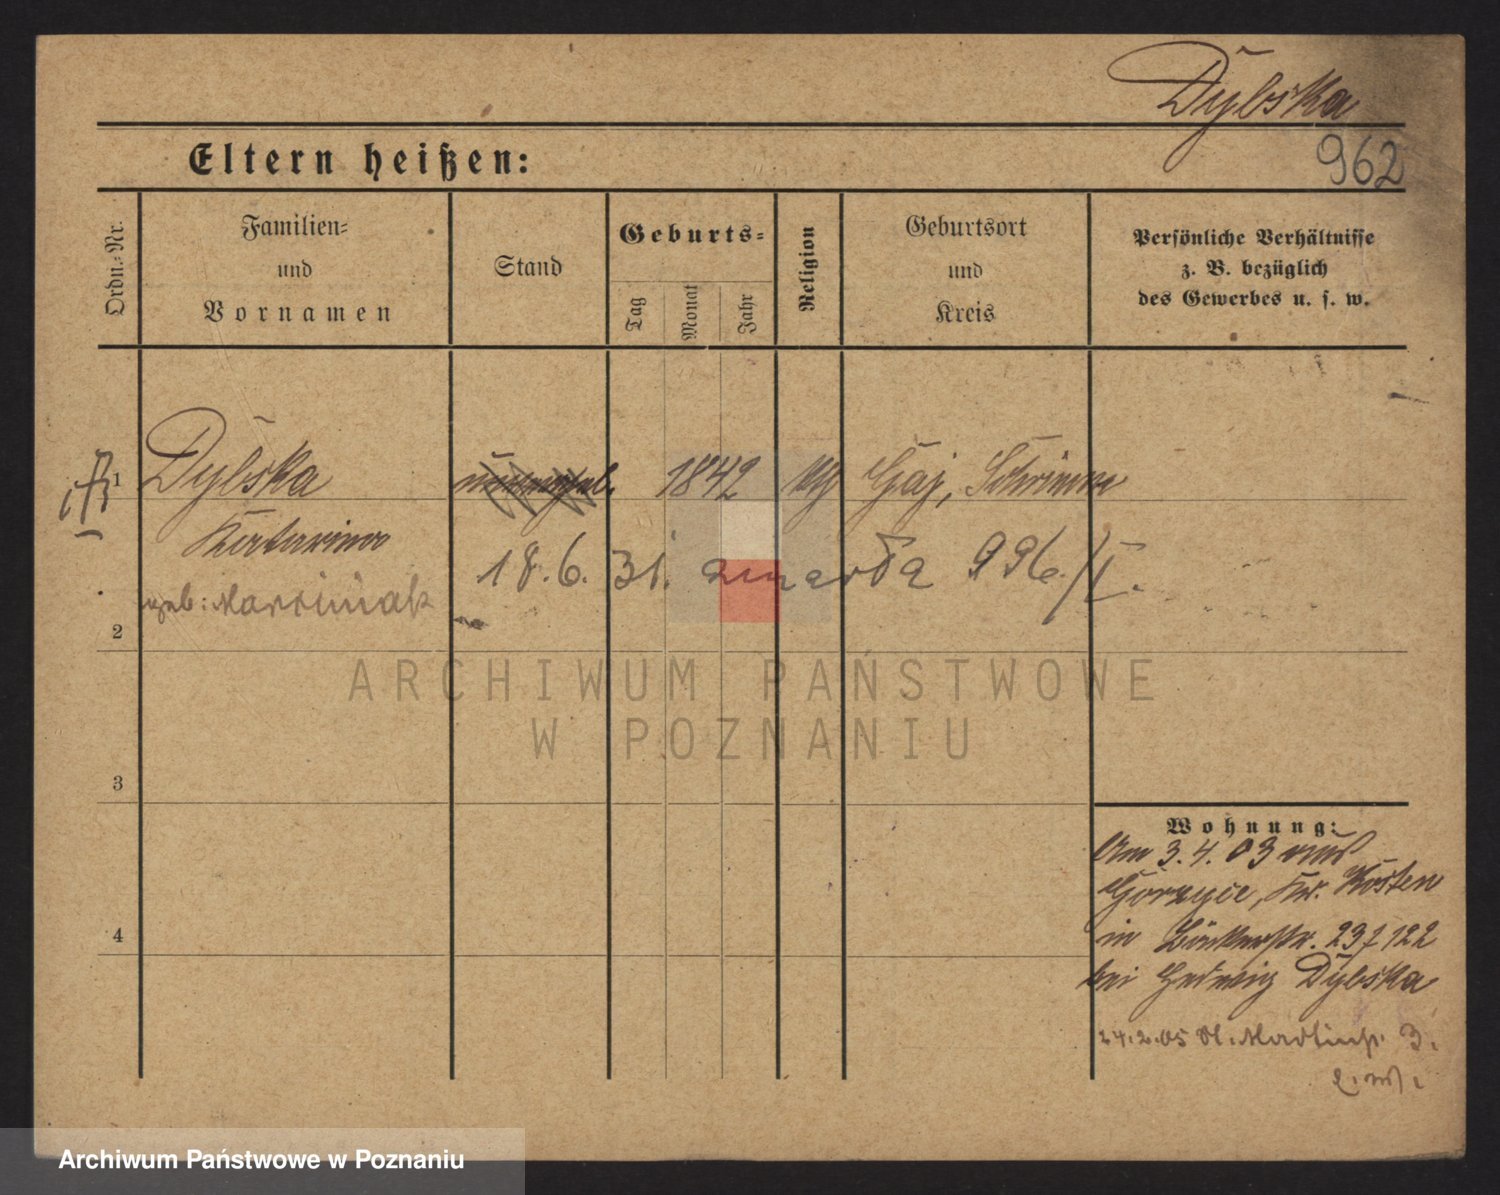 Dybska
962
Eltern heißen:
Ordn.-Nr.
Familien-
und
Vornamen
Stand
Geburts-
Tag
Monat
Jahr
Religion
Geburtsort
und
Kreis
Persönliche Verhältnisse
z. B. bezüglich
des Gewerbes u. s. w.
1
Dybska
1842
Gaj, Schrimm
Katarina
18.6.31. zmarła 996/I.
geb: Marciniak
2
3
4
Wohnung:
Am 3.4.03 aus
Gorzyce, Kr. Kosten
in Bäckerstr. 23 f 122
bei Hedwig Dybska
24.2.05 St. Martinstr. 3.
ARCHIWUM PAŃSTWOWE
W POZNANIU
Archiwum Państwowe w Poznaniu